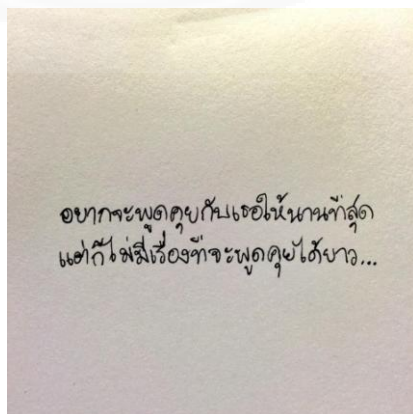 อยากจะพูดคุยกับเธอให้นานที่สุด
แต่ก็ไม่มีเรื่องที่จะพูดคุยได้ยาว...